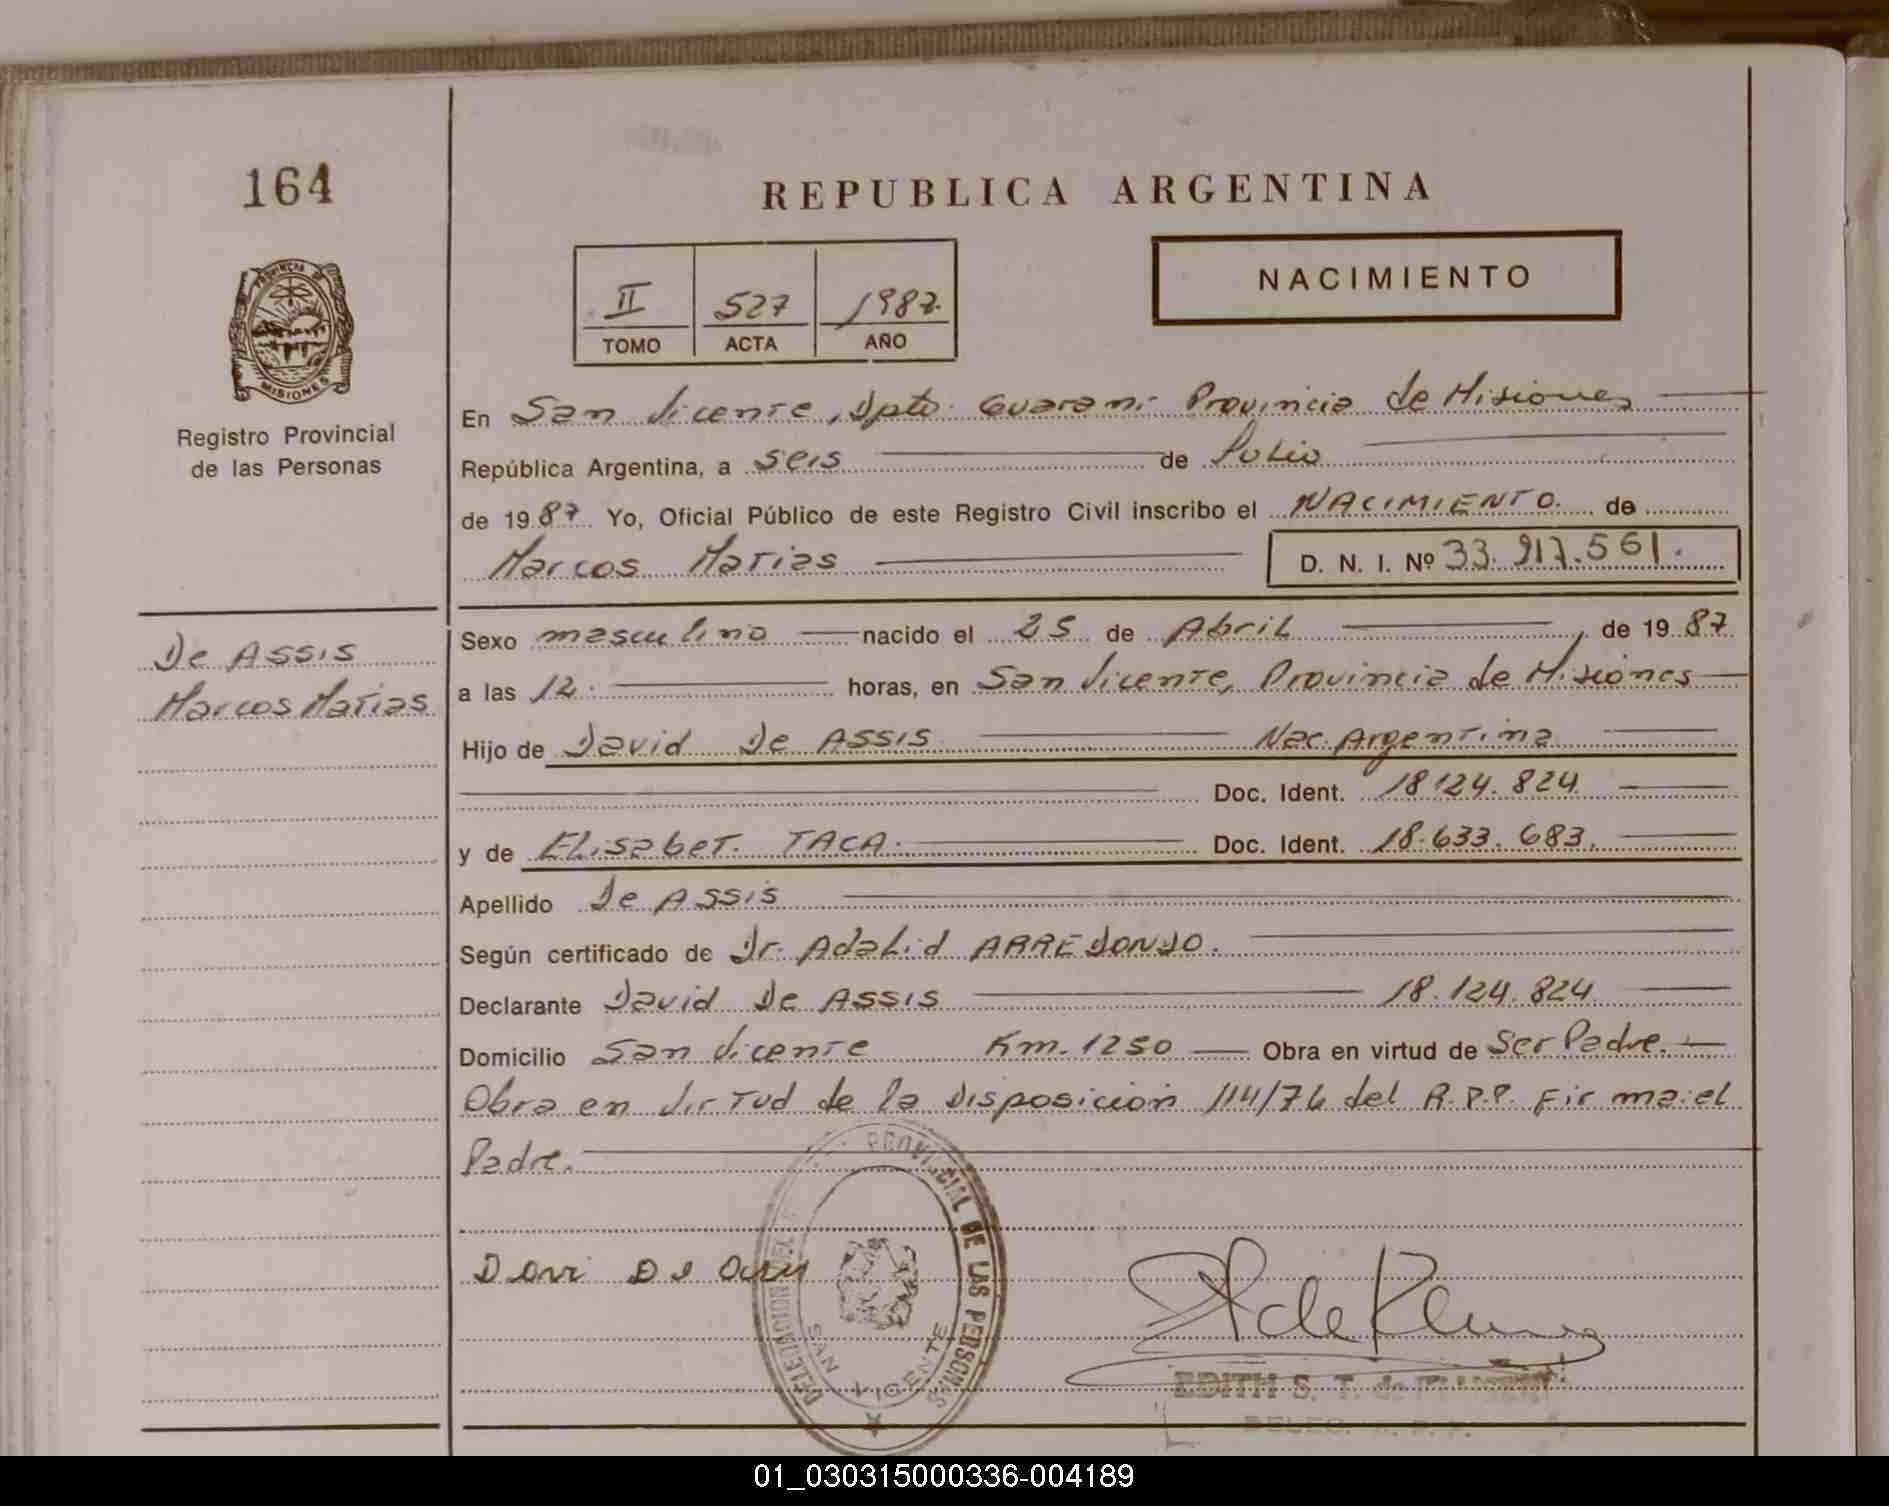 164
REPUBLICA ARGENTINA
PROVINCIA DE
MISIONES
Registro Provincial
de las Personas
II 527 1987.
TOMO ACTA AÑO
NACIMIENTO
En San Vicente, Dpto. Guarani Provincia de Misiones
República Argentina, a seis de Julio
de 1987 Yo, Oficial Público de este Registro Civil inscribo el NACIMIENTO. de
Marcos Matias D. N. I. Nº 33.917.561.
De Assis
Marcos Matias
Sexo masculino nacido el 25 de Abril, de 1987
a las 12. horas, en San Vicente, Provincia de Misiones
Hijo de David De Assis Nac. Argentina
Doc. Ident. 18124.824
y de Elisabet. TACA. Doc. Ident. 18.633.683.
Apellido De Assis
Según certificado de Dr. Adalid ARREDONDO.
Declarante David De Assis 18.124.824
Domicilio San Vicente Km. 1250 Obra en virtud de Ser Padre.
Obra en Virtud de la Disposición 114/76 del R.P.P. Firma: el
Padre.
PROVINCIAL DE LAS PERSONAS
SAN VICENTE
Davi De
EDITH S. T. de
DELEG. R. P. P.
01_030315000336-004189